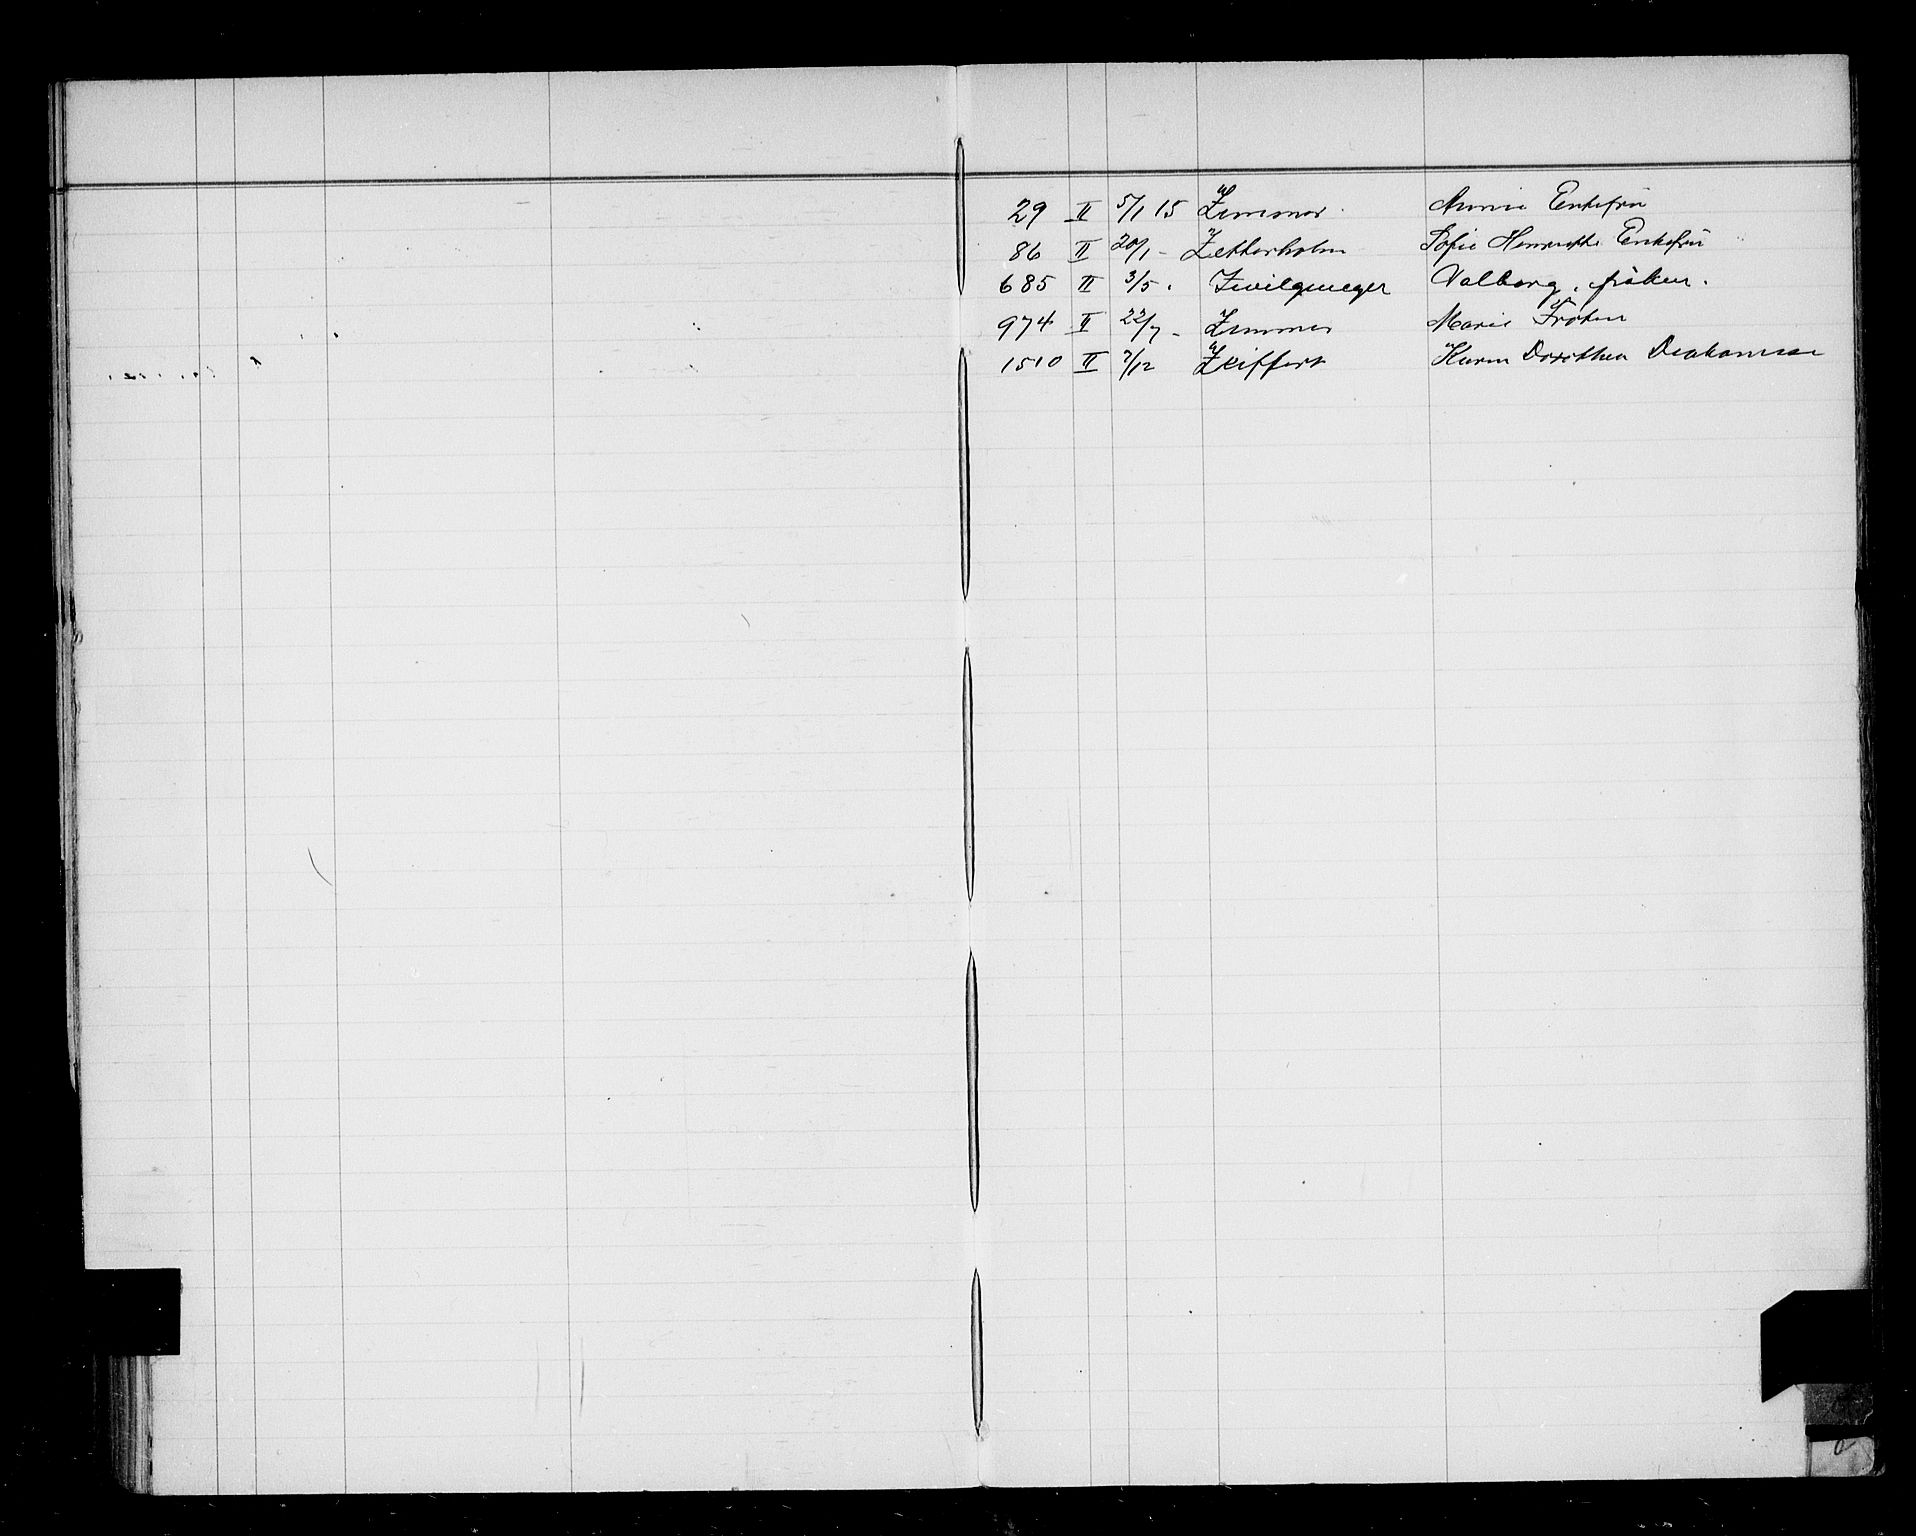 29 II 5/1 15 Zimmer Annie Enkefru
86 II 20/1 - Zetterholm Sofie Henriette Enkefru
685 II 3/5 . Zwilgmeyer Valborg, frøken.
974 II 22/7 - Zimmer Marie Frøken
1510 II 7/12 Zeiffert Karen Dorothea